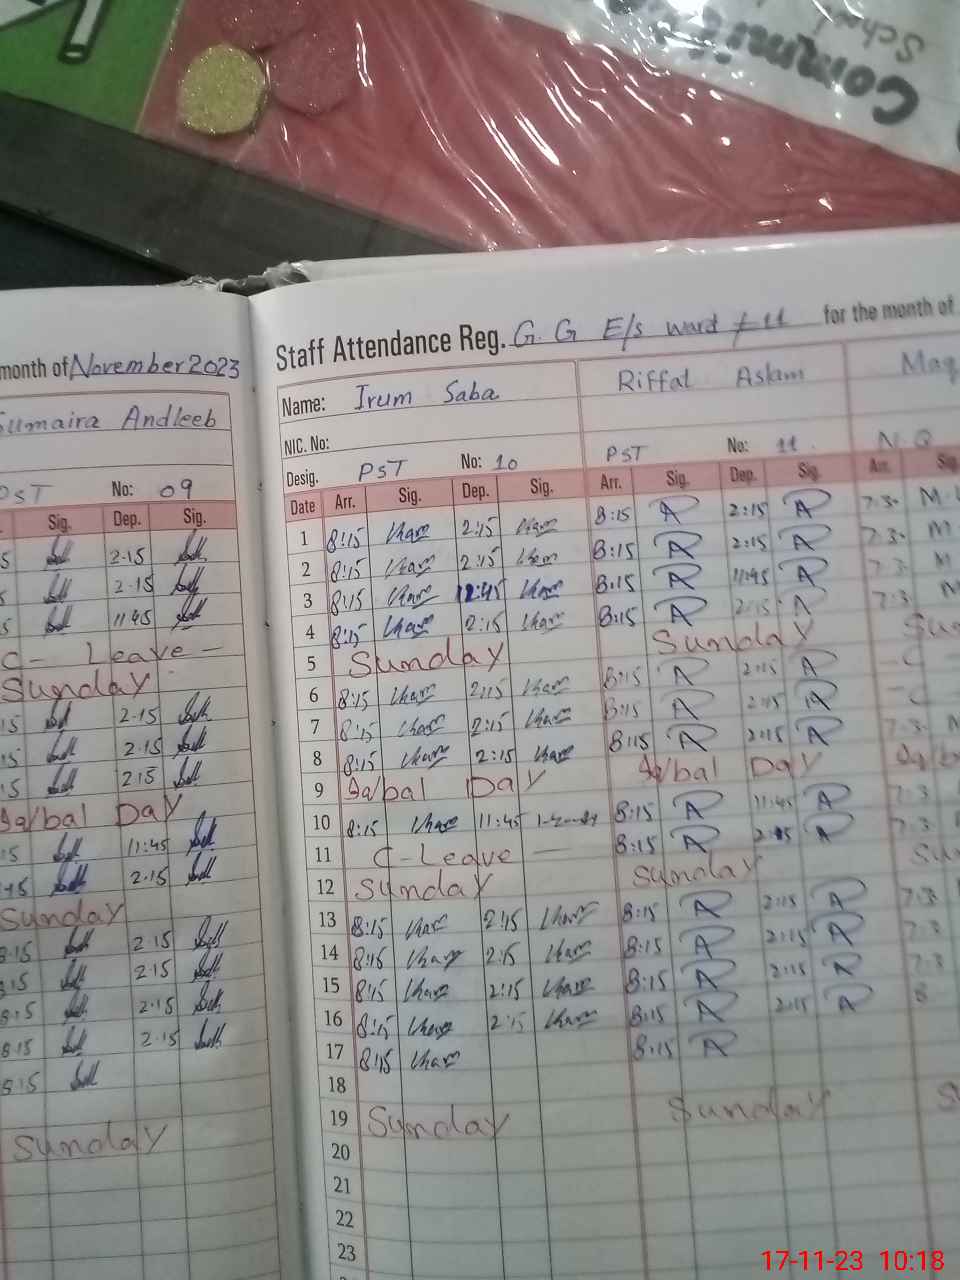 Community
School
month of November 2023
Sumaira Andleeb
PST No: 09
Sig. Dep. Sig.
5 2.15
5 2.15
5 11.45
C- Leave -
Sunday
:15 2.15
:15 2.15
:15 2.15
Iqbal Day
:15 11:45
:45 2.15
Sunday
8:15 2.15
8:15 2.15
8:15 2.15
8:15 2.15
8:15
Sunday
Staff Attendance Reg. G. G E/s ward # 11 for the month of
Name: Irum Saba Riffat Aslam Maq
NIC. No:
Desig. PST No: 10 PST No: 11 N.Q
Date Arr. Sig. Dep. Sig. Arr. Sig. Dep. Sig. Arr. Sig.
1 8:15 2:15 8:15 A 2:15 A 7:30 M.
2 8:15 2:15 8:15 A 2:15 A 7:30 M
3 8:15 11:45 8:15 A 11:45 A 7:3 M
4 8:15 2:15 8:15 A 2:15 A 7:3 M
5 Sunday Sunday Su
6 8:15 2:15 8:15 A 2:15 A - C -
7 8:15 2:15 8:15 A 2:15 A - C
8 8:15 2:15 8:15 A 2:15 A 7:3 M
9 Iqbal Day Iqbal Day Iqb
10 8:15 11:45 8:15 A 11:45 A 7:3
11 C-Leave — 8:15 A 2:15 A 7:3
12 Sunday Sunday Su
13 8:15 2:15 8:15 A 2:15 A 7:3
14 8:15 2:15 8:15 A 2:15 A 7:3
15 8:15 2:15 8:15 A 2:15 A 7:3
16 8:15 2:15 8:15 A 2:15 A 8
17 8:15 8:15 A
18
19 Sunday Sunday S
20
21
22
23
17-11-23 10:18